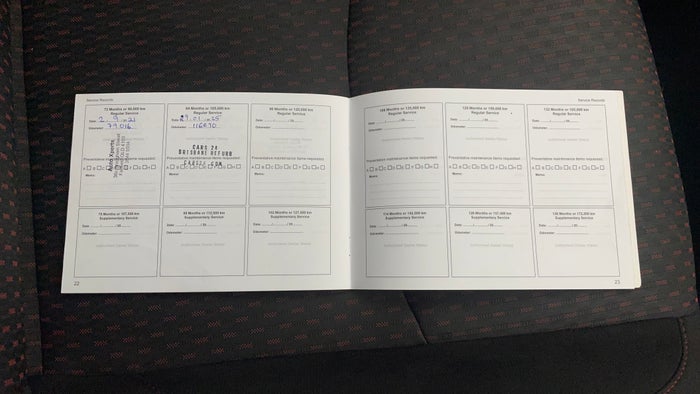 Service Records
72 Months or 90,000 km
Regular Service
Date: 2 . 9 . 21
Odometer: 79016
Auto Xperts
Preventative maintenance items requested:
Memo:
78 Months or 97,500 km
Supplementary Service
Date: ....../....../20......
Odometer:
Authorised Dealer Stamp
84 Months or 105,000 km
Regular Service
Odometer: 116070
CARS 24
BRISBANE REFURB
CARS24.COM
Preventative maintenance items requested:
Memo:
90 Months or 112,500 km
Supplementary Service
Date: ....../....../20......
Odometer:
Authorised Dealer Stamp
96 Months or 120,000 km
Regular Service
Date: ....../....../20......
Odometer:
Authorised Dealer Stamp
Preventative maintenance items requested:
Memo:
102 Months or 127,500 km
Supplementary Service
Date: ....../....../20......
Odometer:
Authorised Dealer Stamp
22
Service Records
108 Months or 135,000 km
Regular Service
Date: ....../....../20......
Odometer:
Authorised Dealer Stamp
Preventative maintenance items requested:
Memo:
114 Months or 142,500 km
Supplementary Service
Date: ....../....../20......
Odometer:
Authorised Dealer Stamp
120 Months or 150,000 km
Regular Service
Date: ....../....../20......
Odometer:
Authorised Dealer Stamp
Preventative maintenance items requested:
Memo:
126 Months or 157,500 km
Supplementary Service
Date: ....../....../20......
Odometer:
Authorised Dealer Stamp
132 Months or 165,000 km
Regular Service
Date: ....../....../20......
Odometer:
Authorised Dealer Stamp
Preventative maintenance items requested:
Memo:
138 Months or 172,500 km
Supplementary Service
Date: ....../....../20......
Odometer:
Authorised Dealer Stamp
23